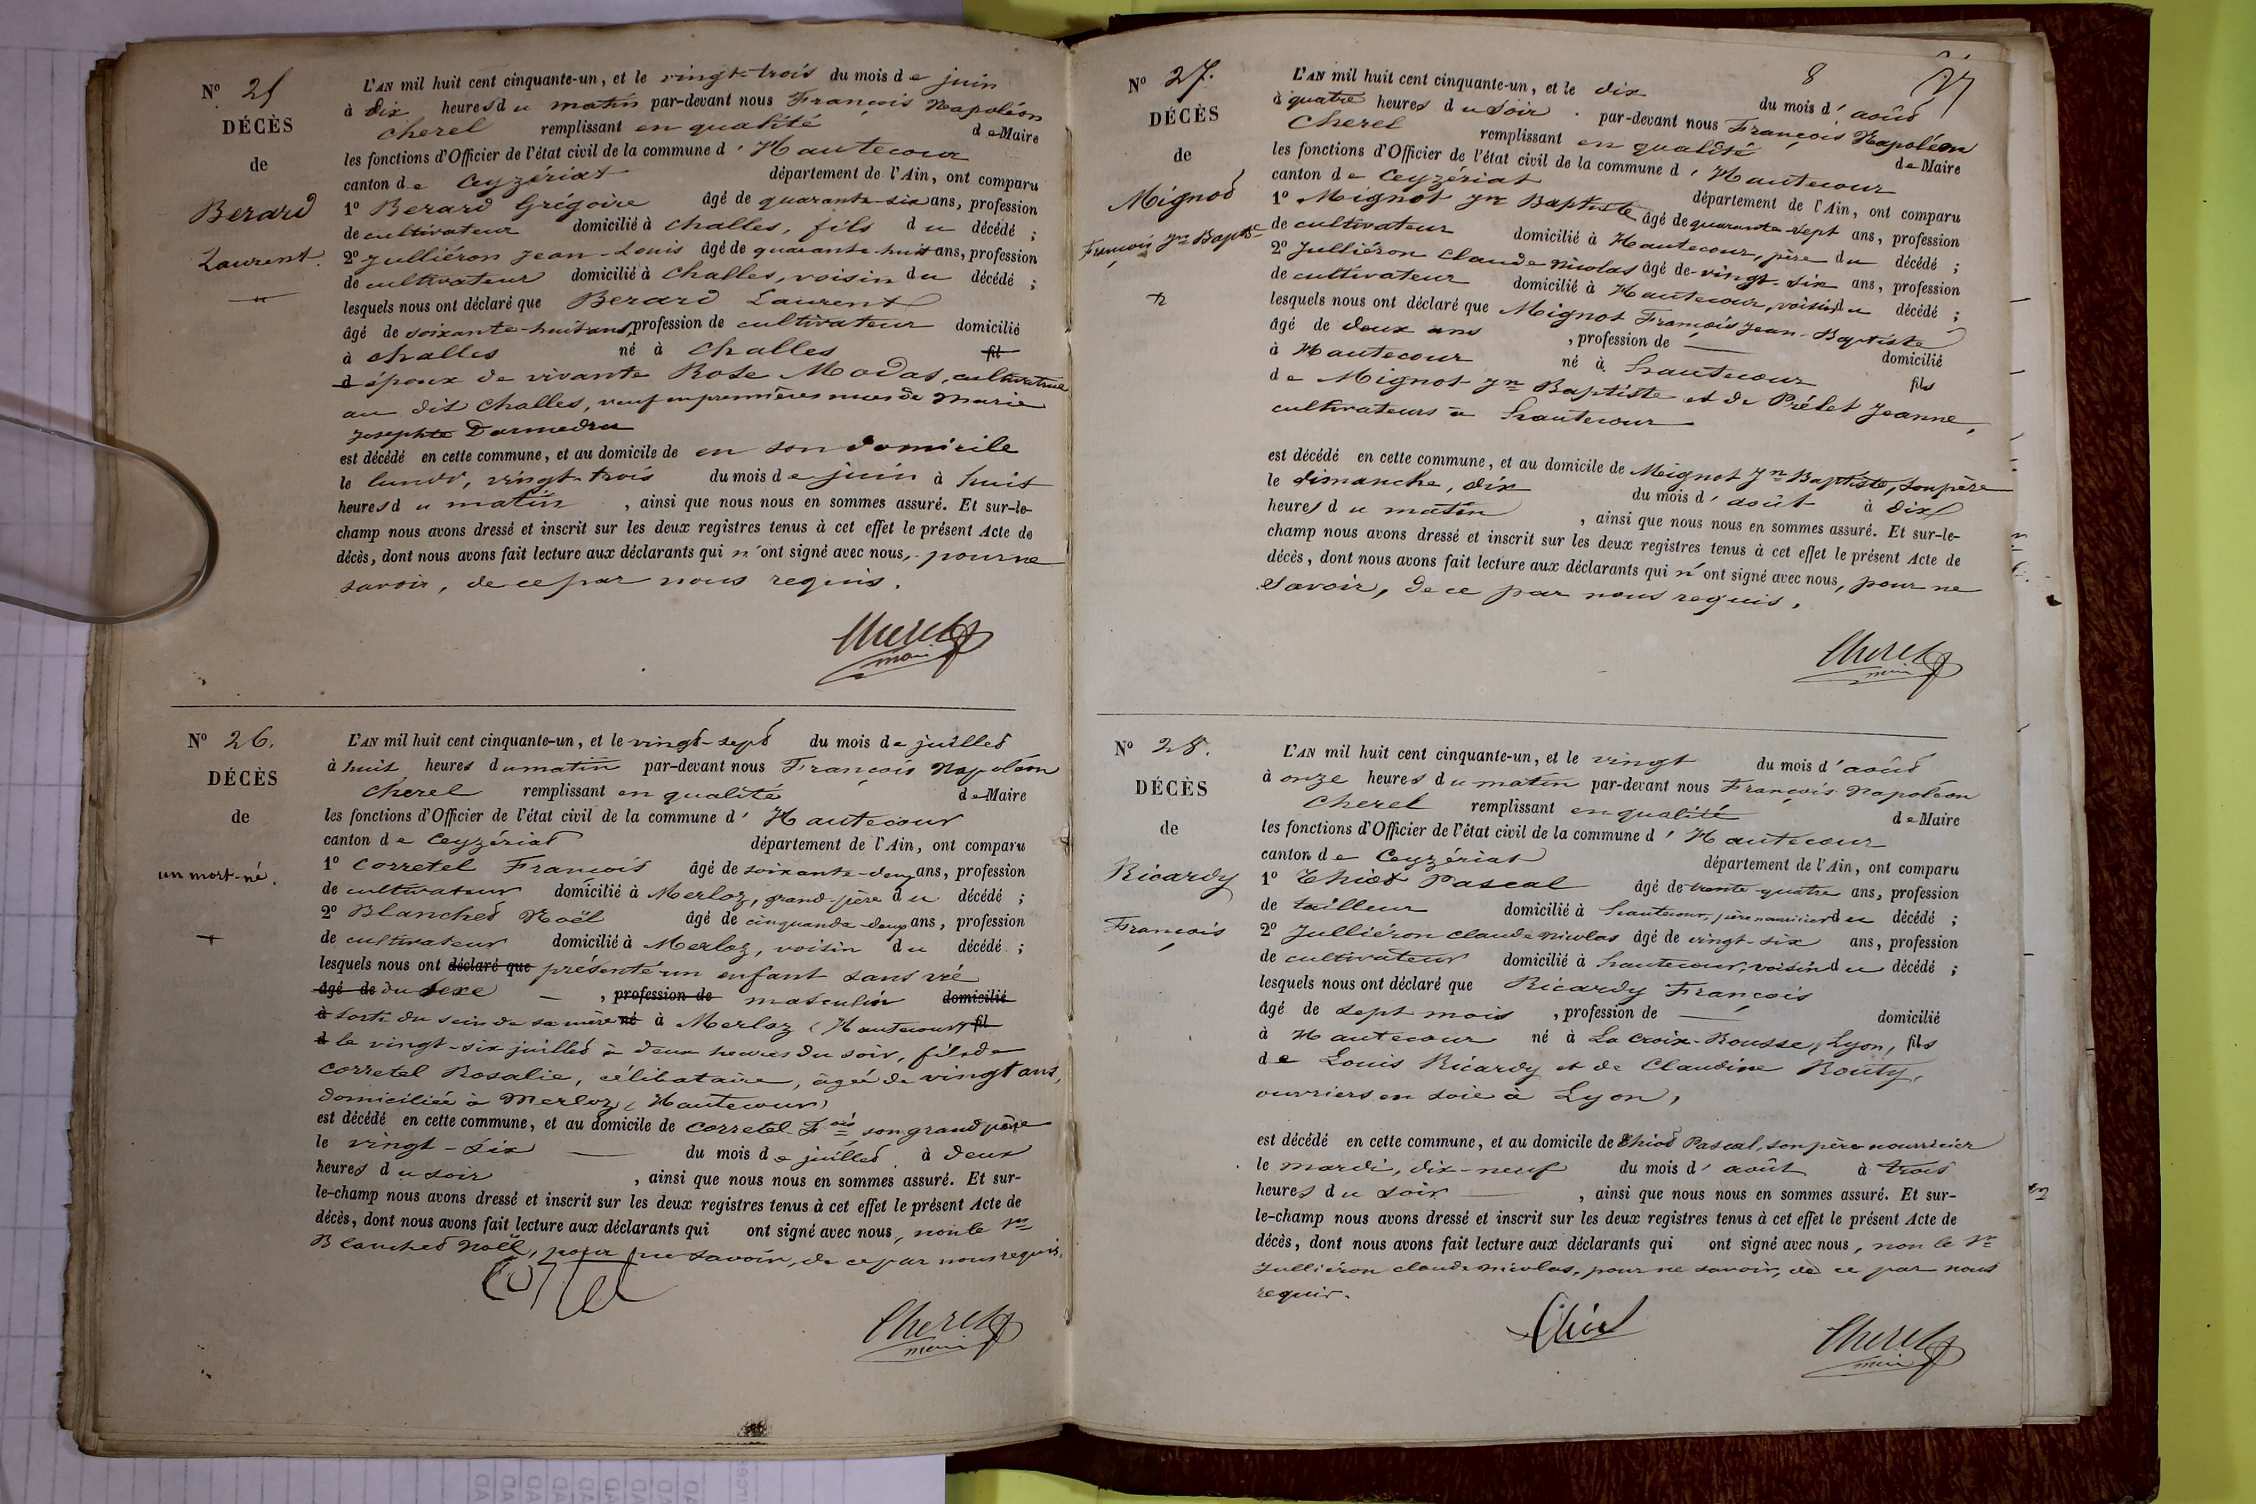 N° 25
DÉCÈS
de
Berard
Laurent.
L'AN mil huit cent cinquante-un, et le vingt-trois du mois de juin
à dix heures du matin par-devant nous François Napoléon
Cherel remplissant en qualité de Maire
les fonctions d'Officier de l'état civil de la commune d'Hautecour
canton de Ceyzériat département de l'Ain, ont comparu
1° Berard Grégoire âgé de quarante-six ans, profession
de cultivateur domicilié à Challes, fils du décédé ;
2° Julliéron Jean-Louis âgé de quarante-huit ans, profession
de cultivateur domicilié à Challes, voisin du décédé ;
lesquels nous ont déclaré que Berard Laurent
âgé de soixante-huit ans, profession de cultivateur domicilié
à Challes né à Challes fil
d époux de vivante Rose Modas, cultivatrice
au dit Challes, veuf en premières noces de Marie
Josephte Darmedru
est décédé en cette commune, et au domicile de en son domicile
le lundi, vingt-trois du mois de juin à huit
heures du matin, ainsi que nous nous en sommes assuré. Et sur-le-
champ nous avons dressé et inscrit sur les deux registres tenus à cet effet le présent Acte de
décès, dont nous avons fait lecture aux déclarants qui n'ont signé avec nous, pour ne
savoir, de ce par nous requis.
Cherel
maire
N° 26.
DÉCÈS
de
un mort-né.
L'AN mil huit cent cinquante-un, et le vingt-sept du mois de juillet
à huit heures du matin par-devant nous François Napoléon
Cherel remplissant en qualité de Maire
les fonctions d'Officier de l'état civil de la commune d'Hautecour
canton de Ceyzériat département de l'Ain, ont comparu
1° Corretel François âgé de soixante-deux ans, profession
de cultivateur domicilié à Merloz, grand-père du décédé ;
2° Blanchet Noël âgé de cinquante-deux ans, profession
de cultivateur domicilié à Merloz, voisin du décédé ;
lesquels nous ont déclaré que présenté un enfant sans vie
âgé de du sexe — , profession de masculin domicilié
à sorti du sein de sa mère né à Merloz (Hautecour) fil
d le vingt-six juillet à deux heures du soir, fils de
Corretel Rosalie, célibataire, âgée de vingt ans,
domiciliée à Merloz (Hautecour)
est décédé en cette commune, et au domicile de Corretel Fois son grand père
le vingt-six — du mois de juillet à deux
heures du soir, ainsi que nous nous en sommes assuré. Et sur-
le-champ nous avons dressé et inscrit sur les deux registres tenus à cet effet le présent Acte de
décès, dont nous avons fait lecture aux déclarants qui ont signé avec nous, non le Sr
Blanchet Noël, pour ne savoir, de ce par nous requis.
Cherel
maire
8
N° 27.
DÉCÈS
de
Mignot
François Jn Bapte
L'AN mil huit cent cinquante-un, et le dix du mois d'août
à quatre heures du soir par-devant nous François Napoléon
Cherel remplissant en qualité de Maire
les fonctions d'Officier de l'état civil de la commune d'Hautecour
canton de Ceyzériat département de l'Ain, ont comparu
1° Mignot Jn Baptiste âgé de quarante-sept ans, profession
de cultivateur domicilié à Hautecour, père du décédé ;
2° Julliéron Claude Nicolas âgé de vingt-six ans, profession
de cultivateur domicilié à Hautecour, voisin du décédé ;
lesquels nous ont déclaré que Mignot François Jean-Baptiste
âgé de deux ans, profession de — domicilié
à Hautecour né à hautecour fils
de Mignot Jn Baptiste et de Prélet Jeanne,
cultivateurs à hautecour
est décédé en cette commune, et au domicile de Mignot Jn Baptiste, son père
le dimanche, dix du mois d'août à dix
heures du matin, ainsi que nous nous en sommes assuré. Et sur-le-
champ nous avons dressé et inscrit sur les deux registres tenus à cet effet le présent Acte de
décès, dont nous avons fait lecture aux déclarants qui n'ont signé avec nous, pour ne
savoir, de ce par nous requis.
Cherel
maire
N° 28.
DÉCÈS
de
Ricardy
François
L'AN mil huit cent cinquante-un, et le vingt du mois d'août
à onze heures du matin par-devant nous François Napoléon
Cherel remplissant en qualité de Maire
les fonctions d'Officier de l'état civil de la commune d'Hautecour
canton de Ceyzériat département de l'Ain, ont comparu
1° Chiot Pascal âgé de trente-quatre ans, profession
de tailleur domicilié à hautecour, père nourricier du décédé ;
2° Julliéron Claude Nicolas âgé de vingt-six ans, profession
de cultivateur domicilié à hautecour, voisin du décédé ;
lesquels nous ont déclaré que Ricardy François
âgé de sept mois, profession de — domicilié
à Hautecour né à La Croix-Rousse, Lyon, fils
de Louis Ricardy et de Claudine Routy,
ouvriers en soie à Lyon,
est décédé en cette commune, et au domicile de Chiot Pascal, son père nourricier
le mardi, dix-neuf du mois d'août à trois
heures du soir — , ainsi que nous nous en sommes assuré. Et sur-
le-champ nous avons dressé et inscrit sur les deux registres tenus à cet effet le présent Acte de
décès, dont nous avons fait lecture aux déclarants qui ont signé avec nous, non le Sr
Julliéron Claude Nicolas, pour ne savoir, de ce par nous
requis.
Chiot
Cherel
maire